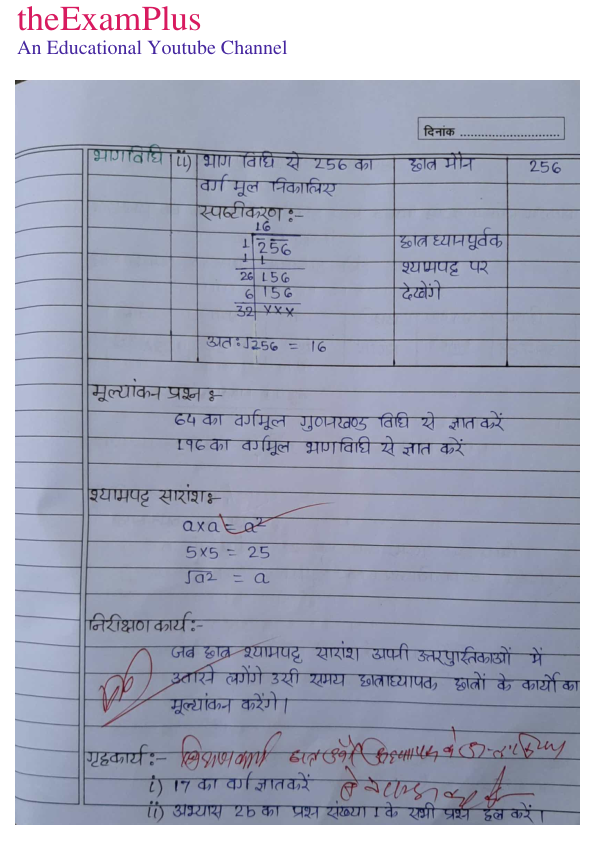 theExamPlus
An Educational Youtube Channel
दिनांक ............................
भागविधि ii) भाग विधि से 256 का छात्र मौन 256
वर्ग मूल निकालिए
स्पष्टीकरण :-
16
1 256 छात्र ध्यानपूर्वक
1 1
26 156 श्यामपट्ट पर
6 156 देखेंगे
32 xxx
अतः √256 = 16
मूल्यांकन प्रश्न :-
64 का वर्गमूल गुणनखण्ड विधि से ज्ञात करें
196 का वर्गमूल भागविधि से ज्ञात करें
श्यामपट्ट सारांश :-
a×a = a²
5×5 = 25
√a2 = a
निरीक्षण कार्य :-
जब छात्र श्यामपट्ट सारांश अपनी उत्तरपुस्तिकाओं में
उतारने लगेंगे उसी समय छात्राध्यापक छात्रों के कार्यो का
मूल्यांकन करेंगे।
गृहकार्य :-
i) 17 का वर्ग ज्ञात करें
ii) अभ्यास 2b का प्रश्न संख्या 1 के सभी प्रश्न हल करें।